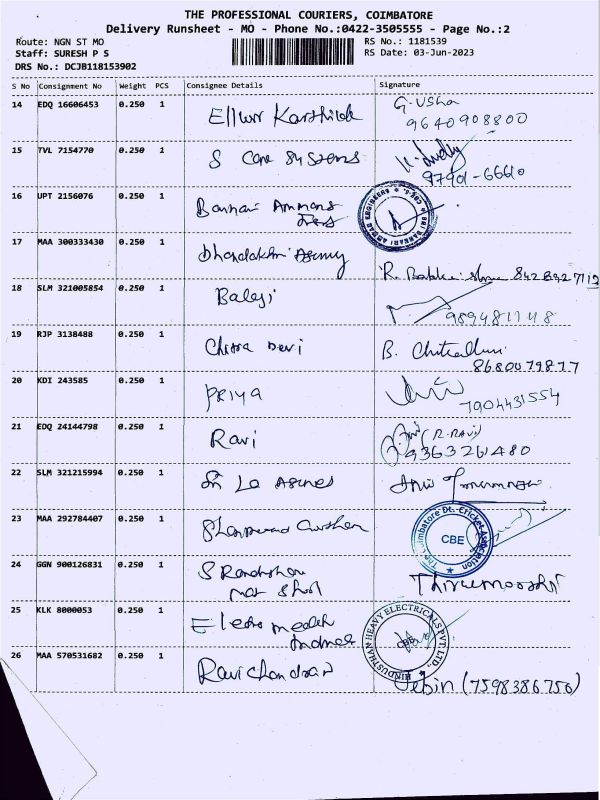 THE PROFESSIONAL COURIERS, COIMBATORE
Delivery Runsheet - MO - Phone No.:0422-3505555 - Page No.:2
Route: NGN ST MO
RS No.: 1181539
Staff: SURESH P S
RS Date: 03-Jun-2023
DRS No.: DCJB118153902
S No Consignment No Weight PCS Consignee Details Signature
14 EDQ 16606453 0.250 1 G. Usha
9640908800
15 TVL 7154770 0.250 1 S Care Systems
97901-66610
16 UPT 2156076 0.250 1 Bannari Ammans
SRI BANNARI AMMAN ENGINEERS
17 MAA 300333430 0.250 1
18 SLM 321005854 0.250 1 Balaji
9894811148
19 RJP 3138488 0.250 1 Chitra Devi B.
8680079877
20 KDI 243585 0.250 1 PRIYA
7904431554
21 EDQ 24144798 0.250 1 Ravi (R.RAVI)
9363261480
22 SLM 321215994 0.250 1
23 MAA 292784407 0.250 1
The Coimbatore Dt. Cricket Association
CBE
24 GGN 900126831 0.250 1 S
Thirumoorthi
25 KLK 8000053 0.250 1
HINDUSTHAN HEAVY ELECTRICALS PVT. LTD.,
26 MAA 570531682 0.250 1 Ravichandran Jebin (7598386756)